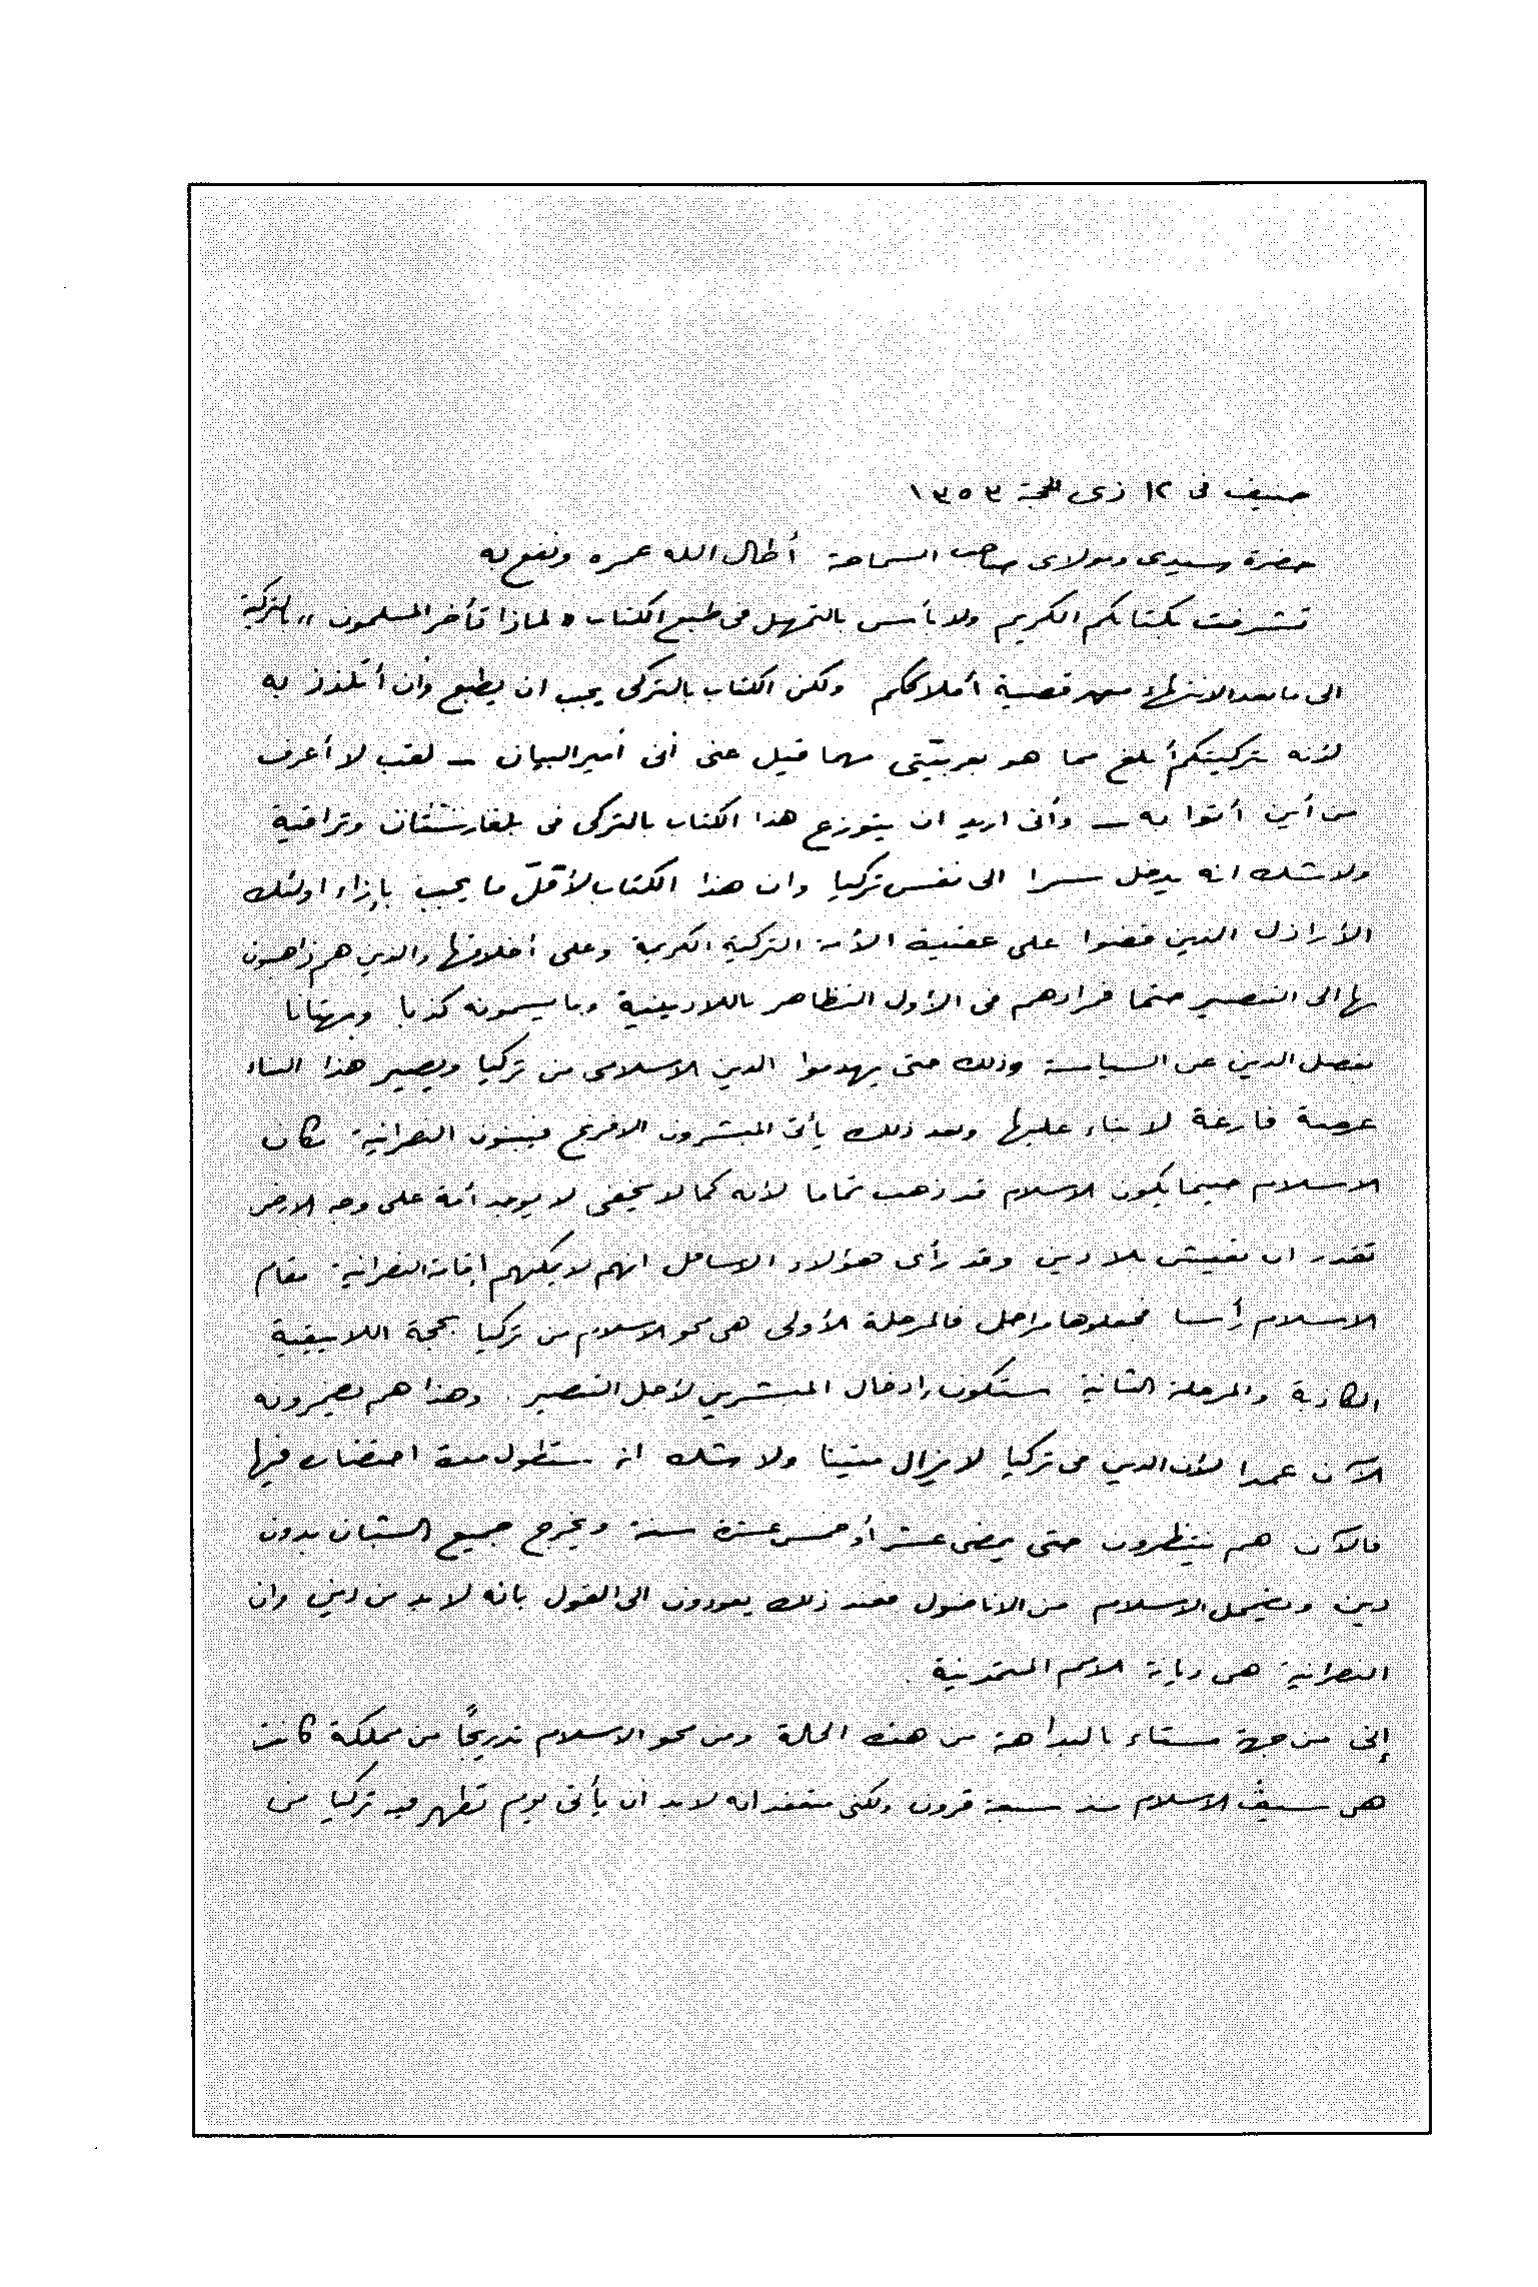 جنيف فى ١٢ ذى الحجة ١٣٥٣
حضرة سيدى ومولاى صاحب السماحة أطال الله عمره ونفع به
تشرفت بكتابكم الكريم ولا بأس بالتمهل فى طبع الكتاب « لماذا تأخر المسلمون » بالتركية
الى ما بعد الانتهاء من قضية أملاككم ولكن الكتاب بالتركى يجب ان يطبع وأن أتلذذ به
لأنه بتركيتكم أبلغ مما هو بعربيّتى مهما قيل عنى أنى أمير البيان — لقب لا أعرف
من أين أتوا به — وأنى اريد ان يتوزع هذا الكتاب بالتركى فى بلغارستان وتراقية
ولا شك انه يدخل سرا الى نفس تركيا وان هذا الكتاب لأقلّ ما يجب بإزاء اولئك
الأراذل الذين قضوا على عقلية الأمة التركية الكريمة وعلى أخلاقها والذين هم ذاهبون
بها الى التنصير حتما فمرادهم فى الأول التظاهر باللادينية وبما يسمونه كذبا وبهتانا
بفصل الدين عن السياسة وذلك حتى يهدموا الدين الاسلامى من تركيا ويصير هذا البناء
عرصة فارغة لا بناء عليها وبعد ذلك يأتى المبشرون الافرنج فيبنون النصرانية مكان
الاسلام حينما يكون الاسلام قد ذهب تماما لأنه كما لا يخفى لا يوجد أمة على وجه الارض
تقدر ان تعيش بلا دين وقد رأى هؤلاء الاسافل انهم لا يمكنهم إقامة النصرانية مقام
الاسلام رأسا فجعلوها مراحل فالمرحلة الأولى هى محو الاسلام من تركيا بحجة اللاييقية
الكاذبة والمرحلة الثانية ستكون إدخال المبشرين لأجل التنصير . وهذا هم يضمرونه
الآن عمدا لأن الدين فى تركيا لا يزال متينا ولا شك انه ستطول مدة احتضاره فيها
فالآن هم ينتظرون حتى يمضى عشر أو خمس عشرة سنة ويخرج جميع الشبان بدون
دين ويضمحل الاسلام من الاناضول فعند ذلك يعودون الى القول بانه لا بد من دين وان
النصرانية هى ديانة الامم المتمدنية .
إنى من جهة مستاء بالبداهة من هذه الحالة ومن محو الاسلام تدريجًا من مملكة كانت
هى سيف الاسلام منذ سبعة قرون ولكنى معتقد انه لا بد ان يأتى يوم تطهر فيه تركيا من